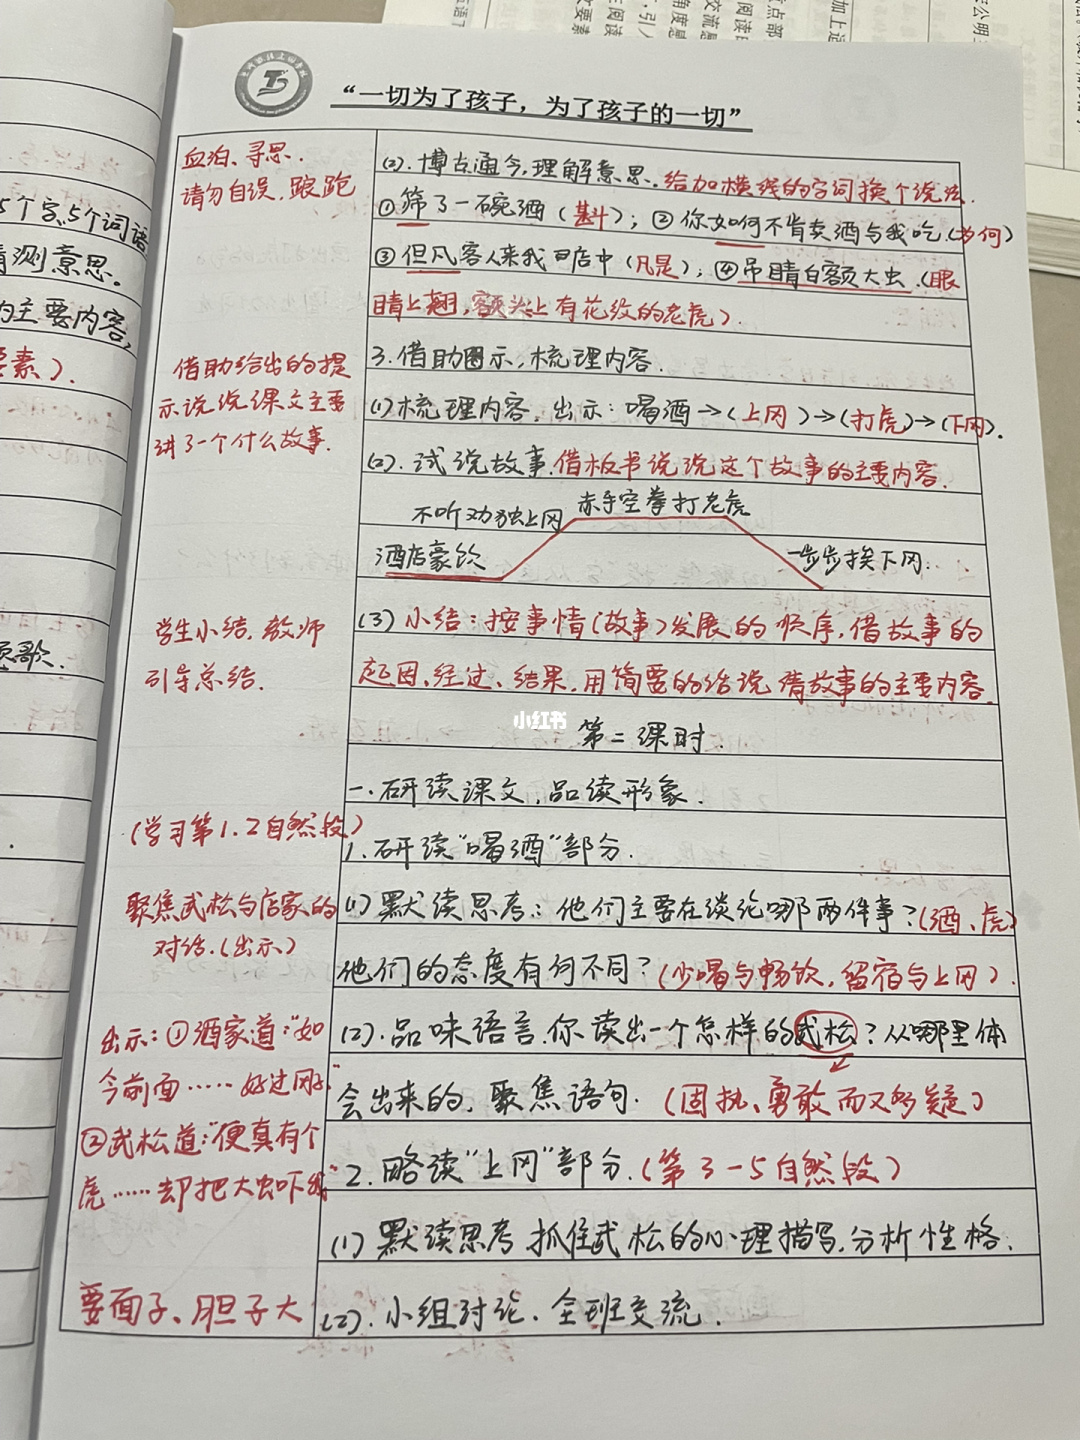 “一切为了孩子，为了孩子的一切”
血泊、寻思.
请勿自误，踉跄
借助给出的提
示说说课文主要
讲了一个什么故事.
学生小结，教师
引导总结.
(学习第1.2自然段)
聚焦武松与店家的
对话.(出示)
出示:①酒家道:“如
今前面……好过冈子.”
②武松道:“便真有个
虎……却把大虫吓我.”
要面子、胆子大
(2).博古通今,理解意思.给加横线的字词换个说法.
①筛了一碗酒(斟);②你如何不肯卖酒与我吃.(为何)
③但凡客人来我店中(凡是);④吊睛白额大虫.(眼
睛上翘,额头上有花纹的老虎).
3.借助图示,梳理内容.
(1)梳理内容,出示:喝酒→(上冈)→(打虎)→(下冈).
(2).试说故事.借板书说说这个故事的主要内容.
不听劝独上冈
赤手空拳打老虎
酒店豪饮
一步步挨下冈
(3)小结:按事情(故事)发展的顺序,借故事的
起因、经过、结果,用简要的话说清故事的主要内容.
第二课时.
一.研读课文,品读形象.
1.研读“喝酒”部分.
(1)默读思考:他们主要在谈论哪两件事?(酒、虎)
他们的态度有何不同?(少喝与畅饮,留宿与上冈).
(2).品味语言.你读出一个怎样的武松?从哪里体
会出来的,聚焦语句.(固执、勇敢而又多疑)
2.略读“上冈”部分.(第3-5自然段)
(1)默读思考,抓住武松的心理描写,分析性格.
(2).小组讨论.全班交流.
5个字、5个词语
猜测意思.
的主要内容,
要素).
小红书